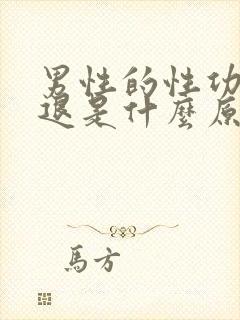 男性的性功
退是什麼原
馬方